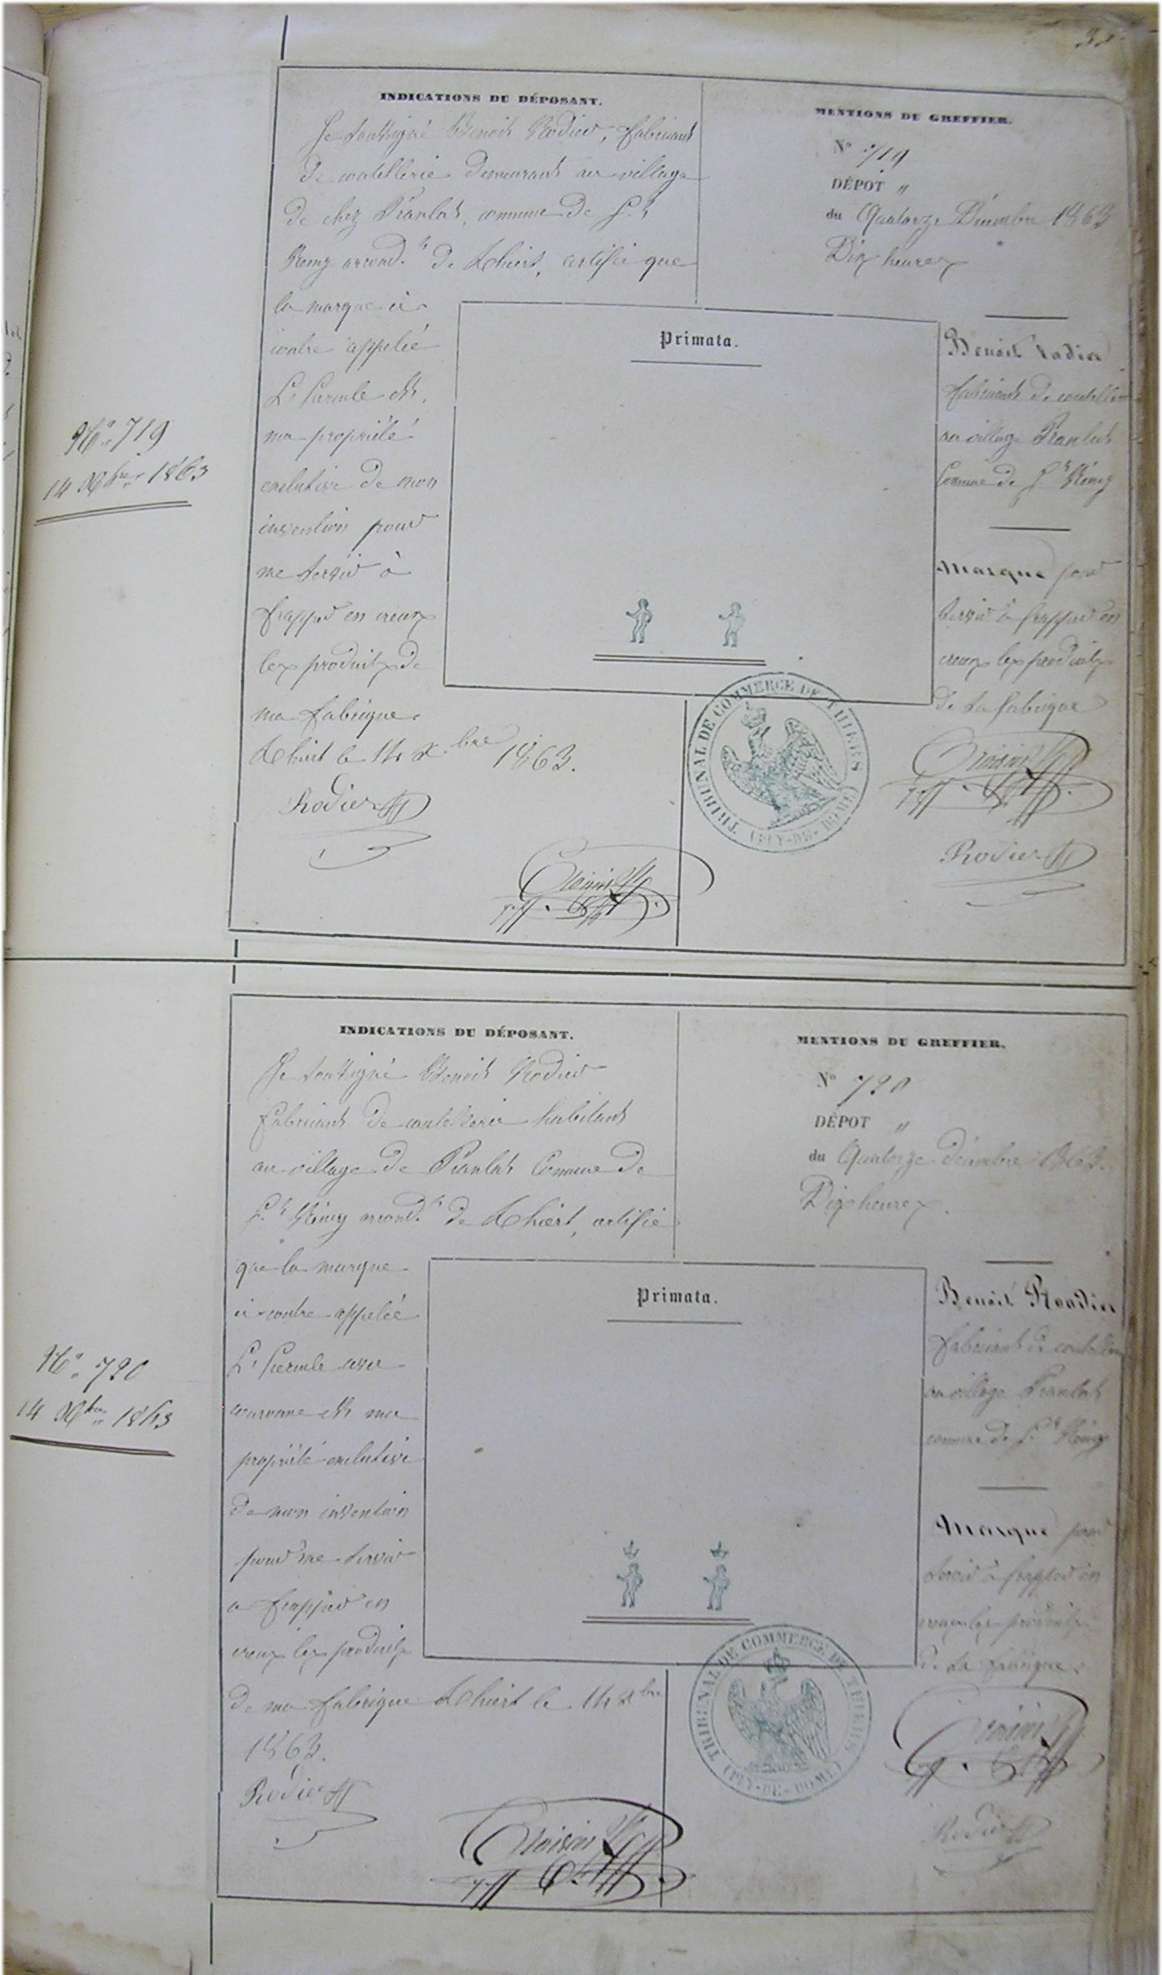 INDICATIONS DU DÉPOSANT.
Je soussigné Benoit Rodier, fabricant
de coutellerie demeurant au village
de chez Pranlat, commune de St
Remy arrond.t de Thiers, certifie que
la marque ci-
contre appelée
L'hercule est
ma propriété
exclusive de mon
invention pour
me servir à
frapper en creux
les produits de
ma fabrique.
Thiers le 14 Xbre 1863.
Rodier
MENTIONS DU GREFFIER.
N° 719
DÉPOT "
du Quatorze Décembre 1863
Dix heures
Primata.
Benoit Rodier
fabricant de coutellerie
au village Pranlat
Commune de St Rémy
Marque pour
servir à frapper en
creux les produits
de sa fabrique
Rodier
TRIBUNAL DE COMMERCE DE THIERS (PUY-DE-DOME)
N° 719
14 Xbre 1863
INDICATIONS DU DÉPOSANT.
Je soussigné Benoit Rodier
fabricant de coutellerie habitant
au village de Pranlat Commune de
St Rémy arrond.t de Thiers, certifie
que la marque
ci-contre appelée
L'hercule avec
couronne est ma
propriété exclusive
de mon invention
pour me servir
a frapper en
creux les produits
de ma fabrique Thiers le 14 Xbre
1863.
Rodier
MENTIONS DU GREFFIER.
N° 720
DÉPOT "
du Quatorze décembre 1863.
Dix heures.
Primata.
Benoit Roodier
fabricant de coutellerie
au village Pranlat
commune de St Rémy
Marque pour
servir à frapper en
creux les produits
de sa fabrique.
Rodier
TRIBUNAL DE COMMERCE DE THIERS (PUY-DE-DOME)
N° 720
14 Xbre 1863